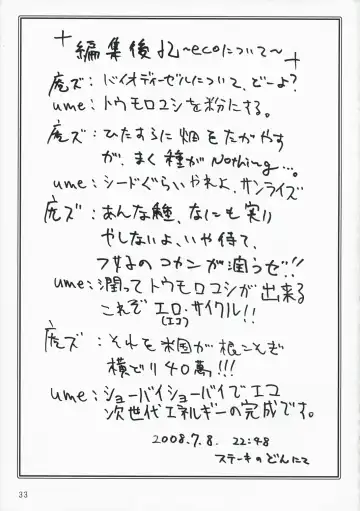 編集後記 ~ecoについて~
虎ズ：バイオディーゼルについて、どーよ?
ume：トウモロコシを粉にする。
虎ズ：ひたすらに畑をたがやす
が、まく種がNothing…。
ume：シードぐらいやれよ、サンライズ
虎ズ：あんな種、なにも実り
やしないよ、いや待て、
つ女子のコカンが潤うゼ!!
ume：潤ってトウモロコシが出来る
これぞエロ・サイクル!!
(エコ)
虎ズ：それを米国が根こそぎ
横どり40萬!!!
ume：ショーバイショーバイで、エコ
次世代エネルギーの完成です。
2008.7.8. 22:48
ステーキのどんにて
33